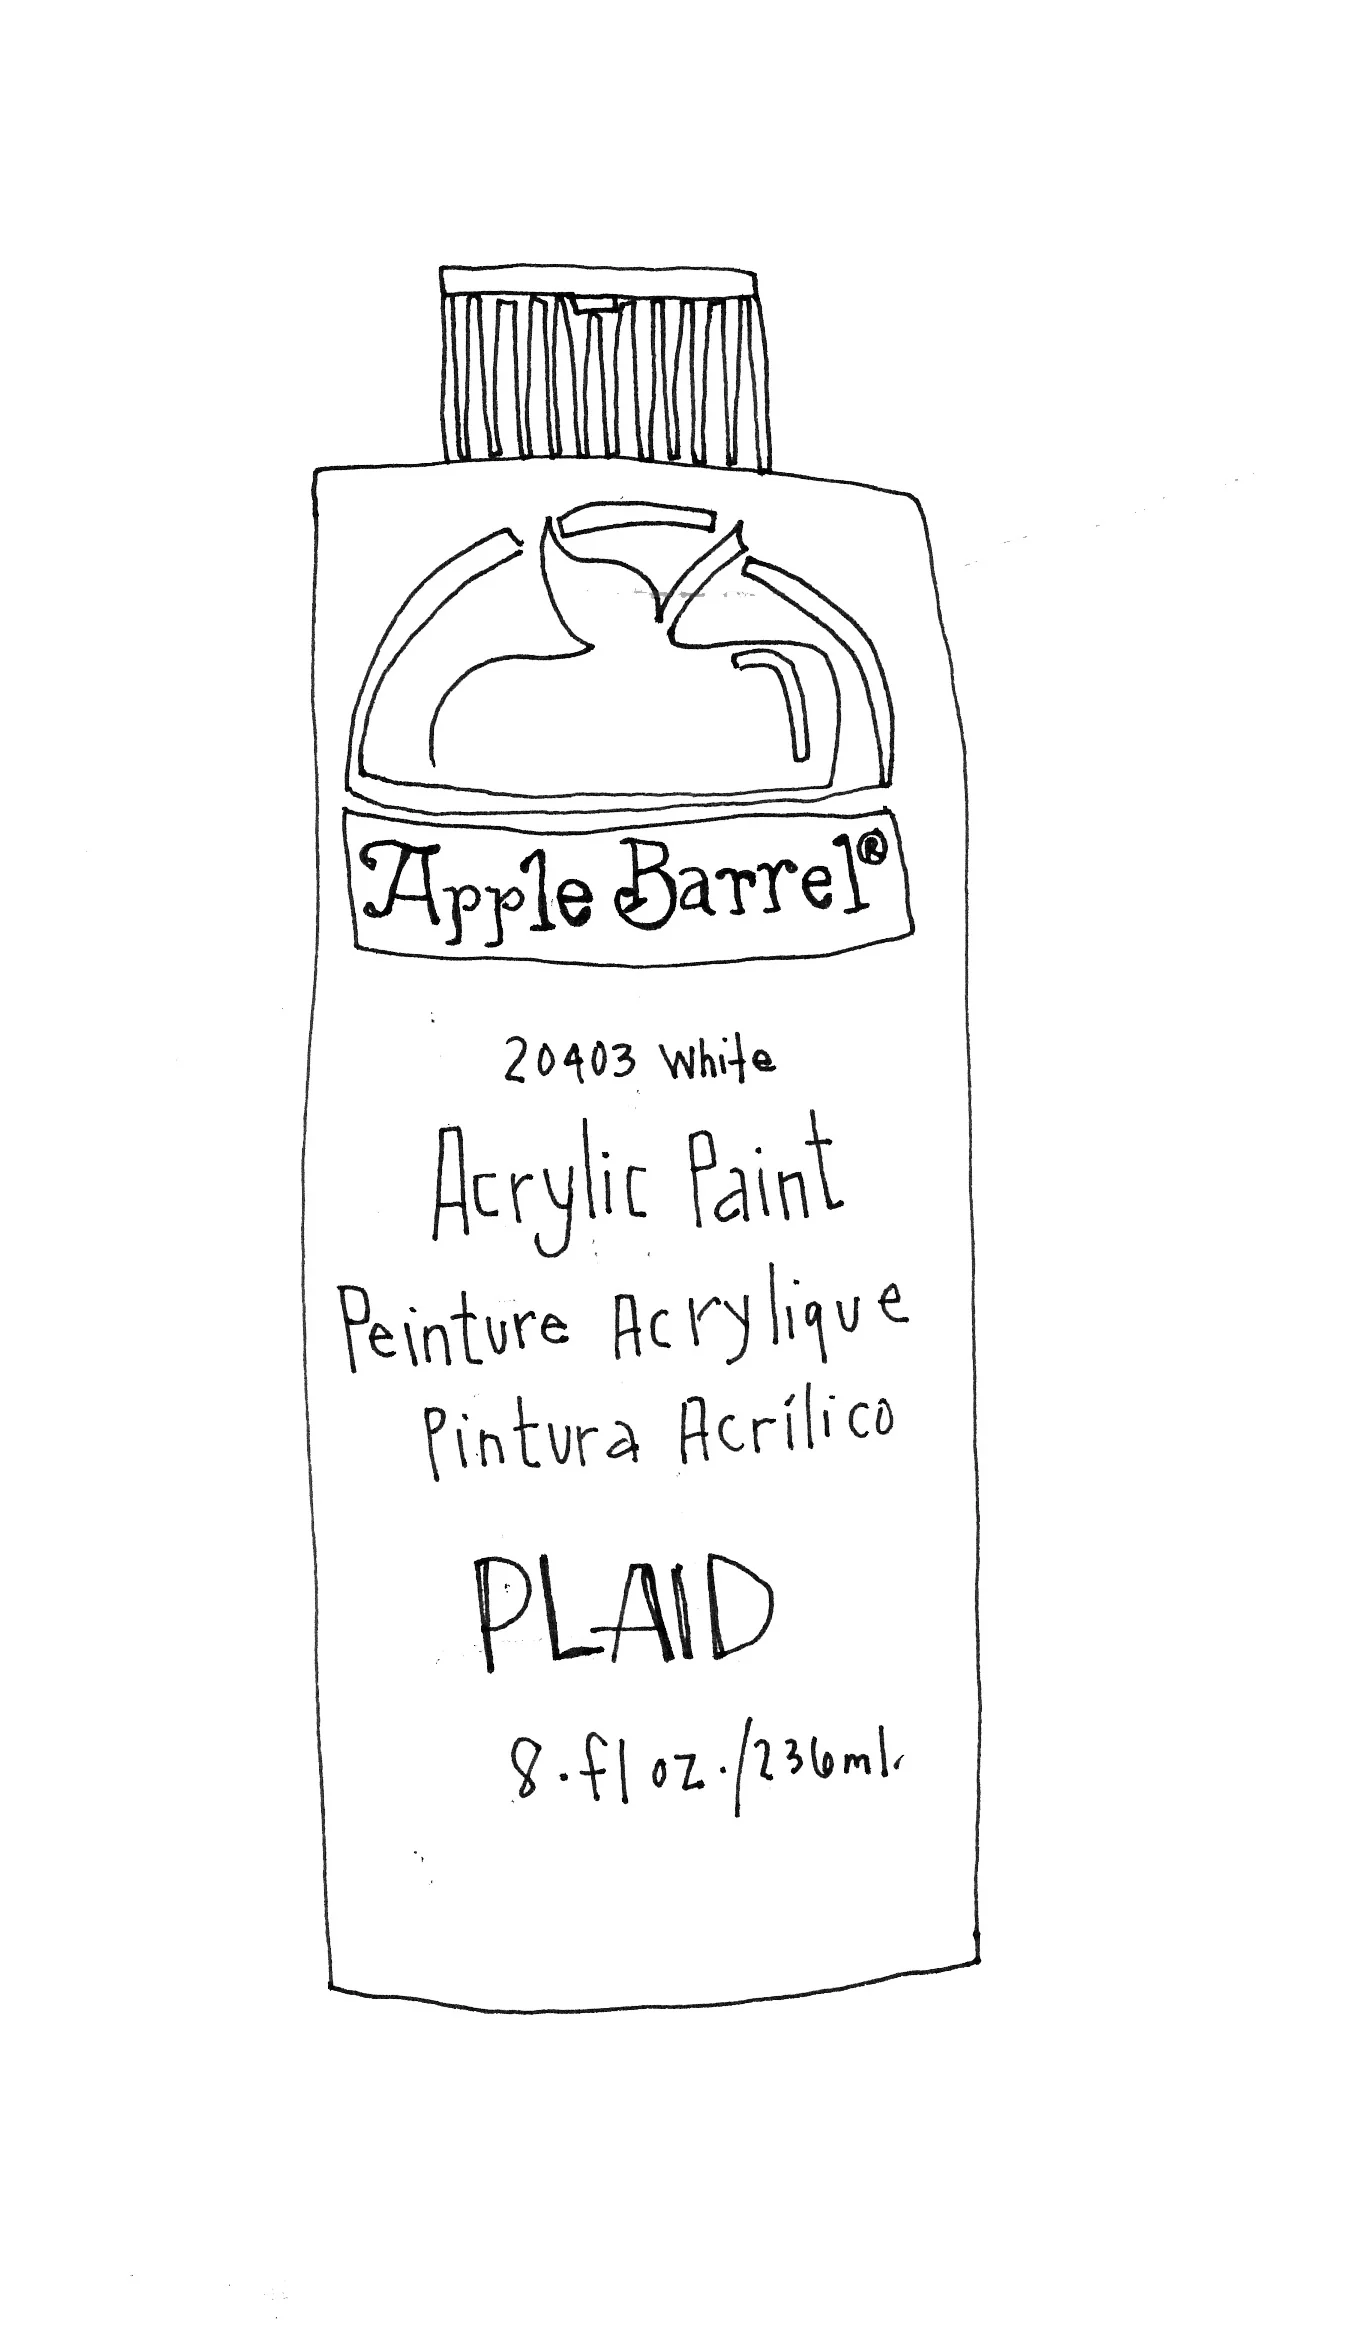 Apple Barrel®
20403 White
Acrylic Paint
Peinture Acrylique
Pintura Acrílico
PLAID
8.fl oz./236ml.